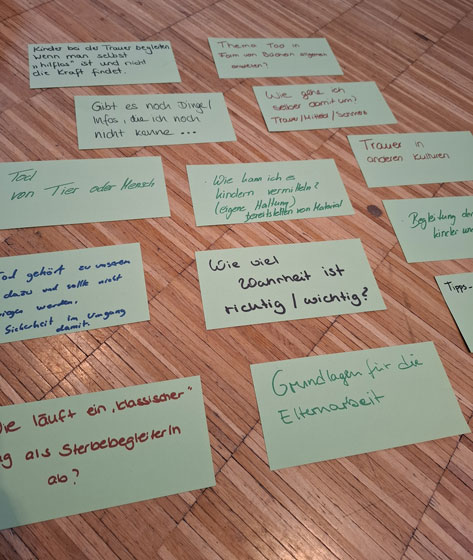 Kinder bei der Trauer begleiten
Wenn man selbst
„hilflos" ist und nicht
die Kraft findet.
Thema Tod in
Form von Büchern allgemein
Gibt es noch Dinge/
Infos, die ich noch
nicht kenne ...
Wie gehe ich
selber damit um?
Trauer/Mitleid/Schmerz
Trauer in
anderen Kulturen
Tod
von Tier oder Mensch
Wie kann ich es
Kindern vermitteln?
(eigene Haltung)
bereitstellen von Material
Begleitung der
Kinder
Tod gehört zu unserem
dazu und sollte nicht
werden.
Sicherheit im Umgang
damit
Wie viel
Wahrheit ist
richtig / wichtig?
Tipps
Grundlagen für die
Elternarbeit
läuft ein „klassischer"
als SterbebegleiterIn
ab?